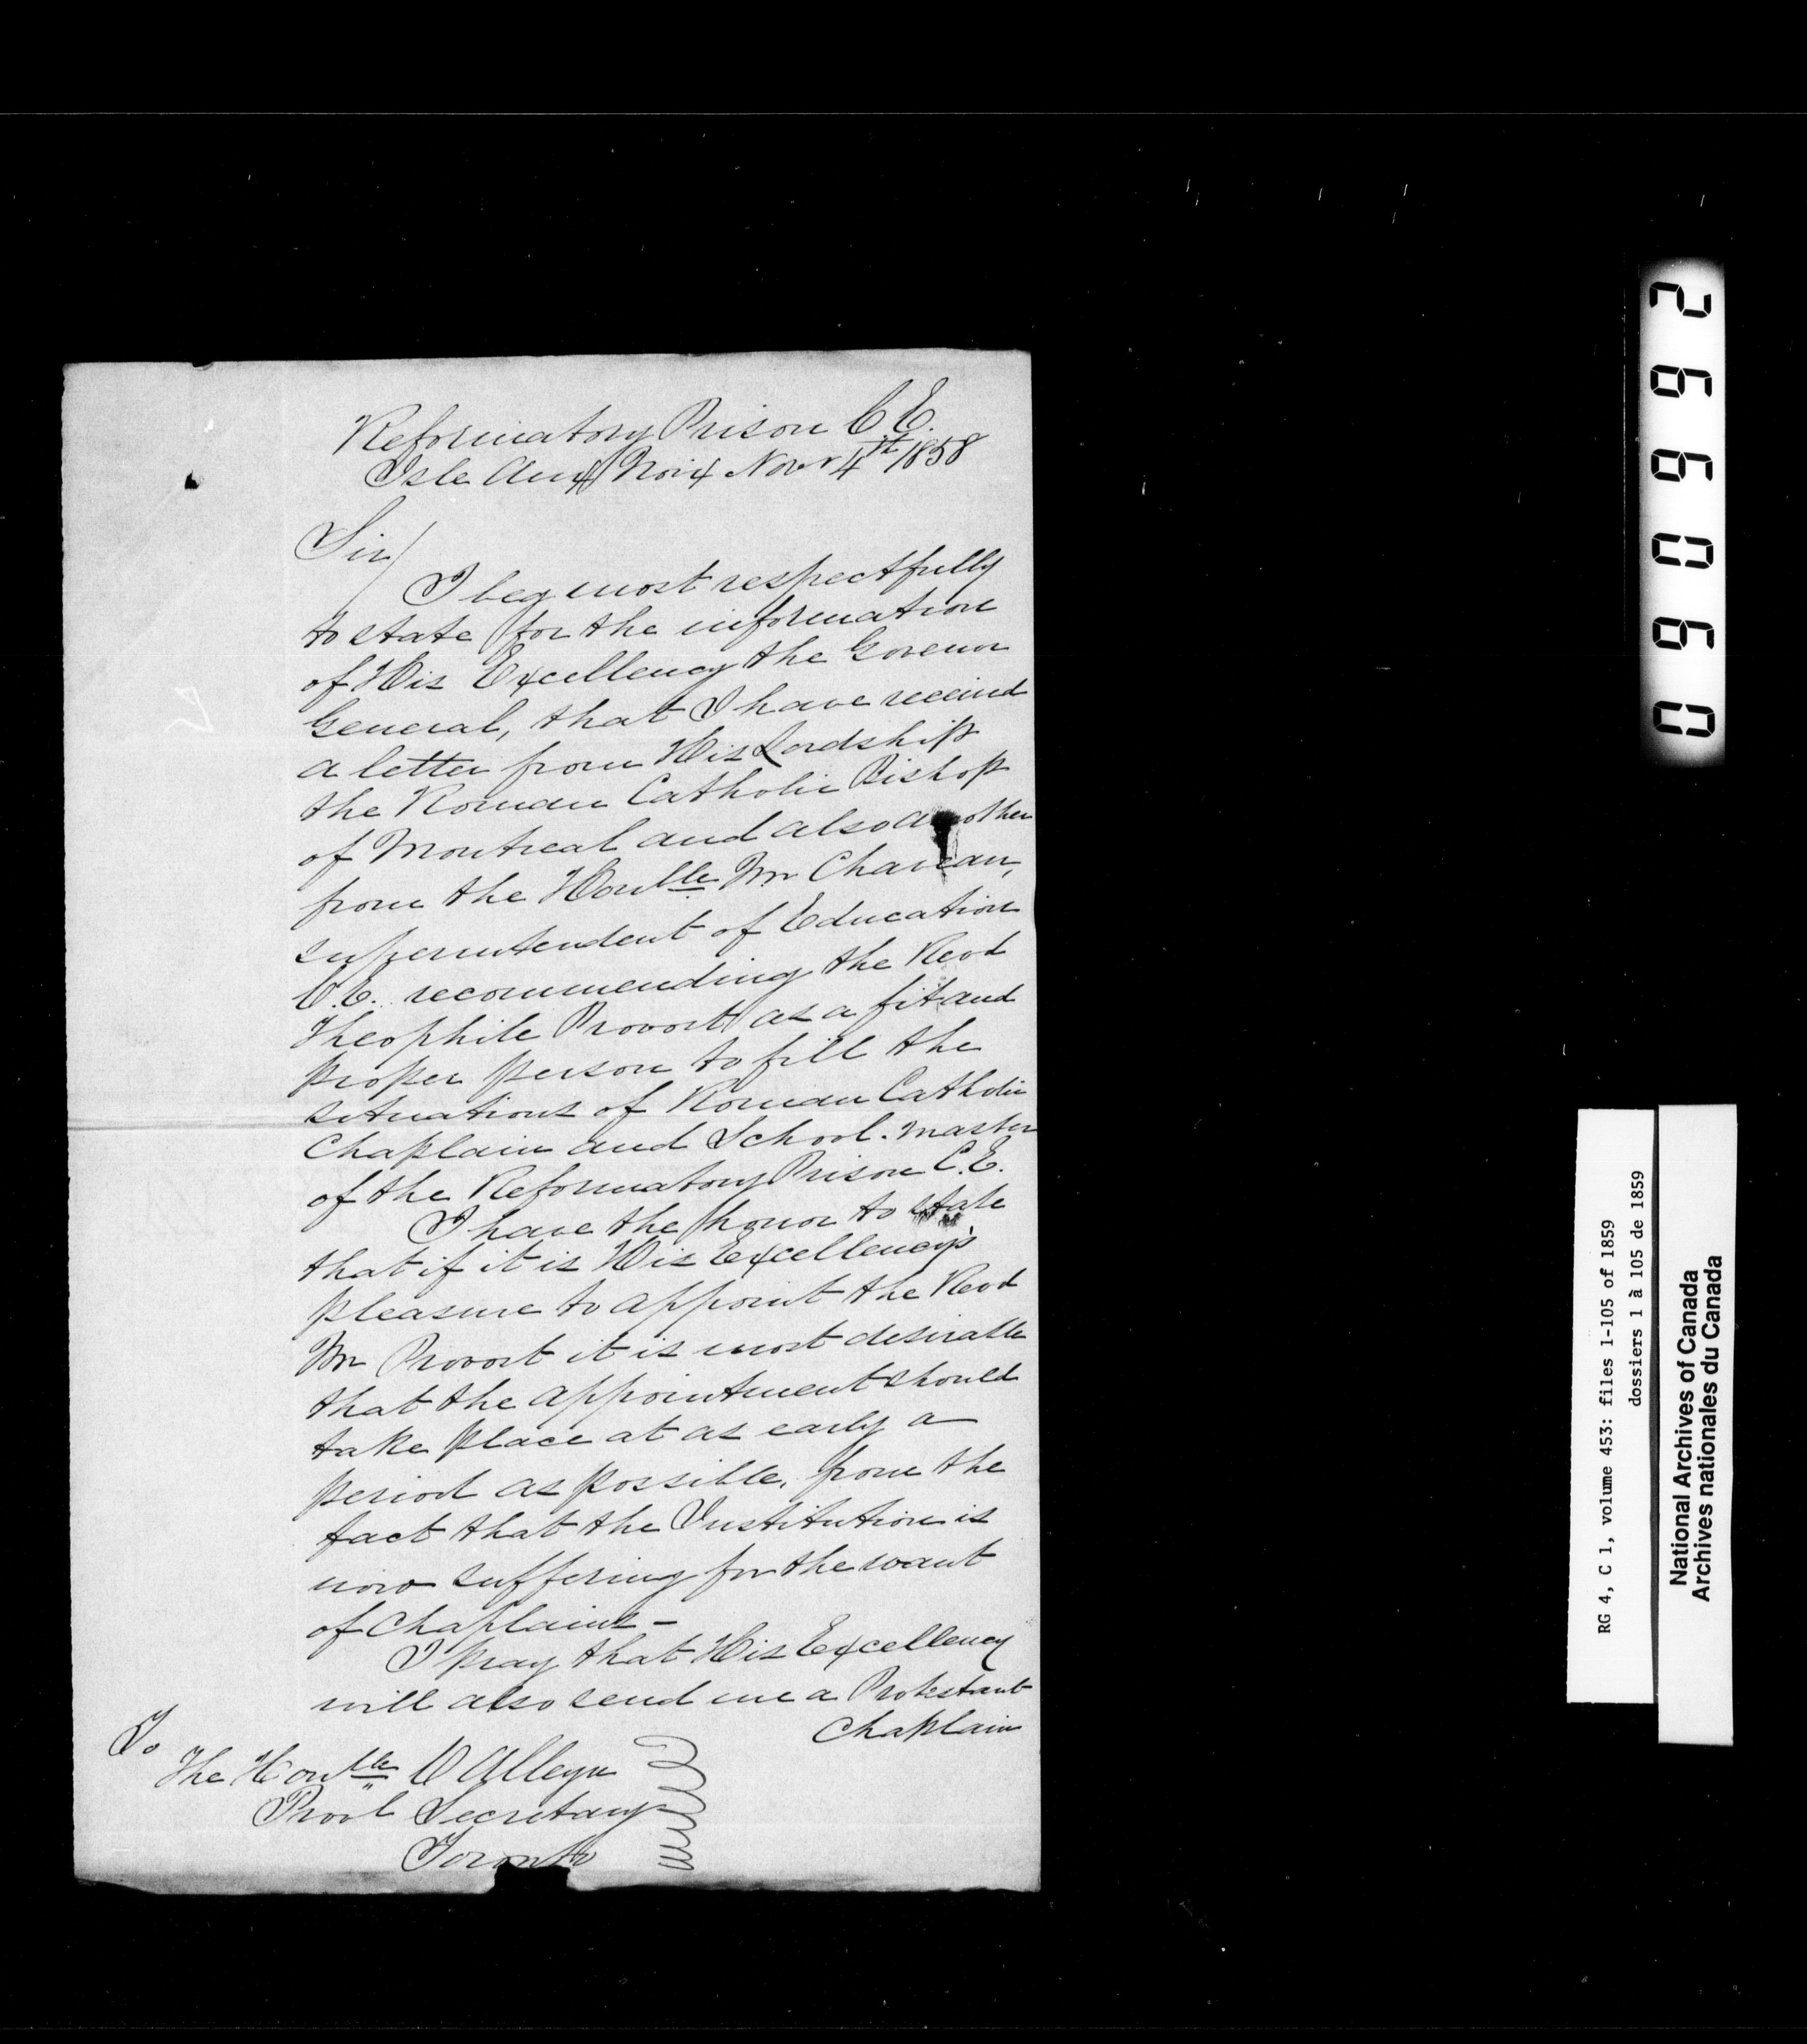 Reformatory Prison C.E.
Isle Aux Noix Novr 4th 1858
Sir/
I beg most respectfully
to state for the information
of His Excellency the Govenor
General, that I have received
a letter from His Lordship
the Roman Catholic Bishop
of Montreal and also another
from the Honble Mr Chaveau,
superintendent of Education
C.E. recommending the Revd
Theophile Provost as a fit and
proper person to fill the
situations of Roman Catholic
Chaplain and School-master
of the Reformatory Prison C.E.
I have the honor to state
that if it is His Excellency's
pleasure to appoint the Revd
Mr Provost it is most desirable
that the appointment should
take place at as early a
period as possible, from the
fact that the Institution is
now suffering for the want
of Chaplains -
I pray that His Excellency
will also send me a Protestant
Chaplain
To
The Honble C Alleyn
Provl Secretary
Toronto
266090
RG 4, C 1, volume 453: files 1-105 of 1859
dossiers 1 à 105 de 1859
National Archives of Canada
Archives nationales du Canada